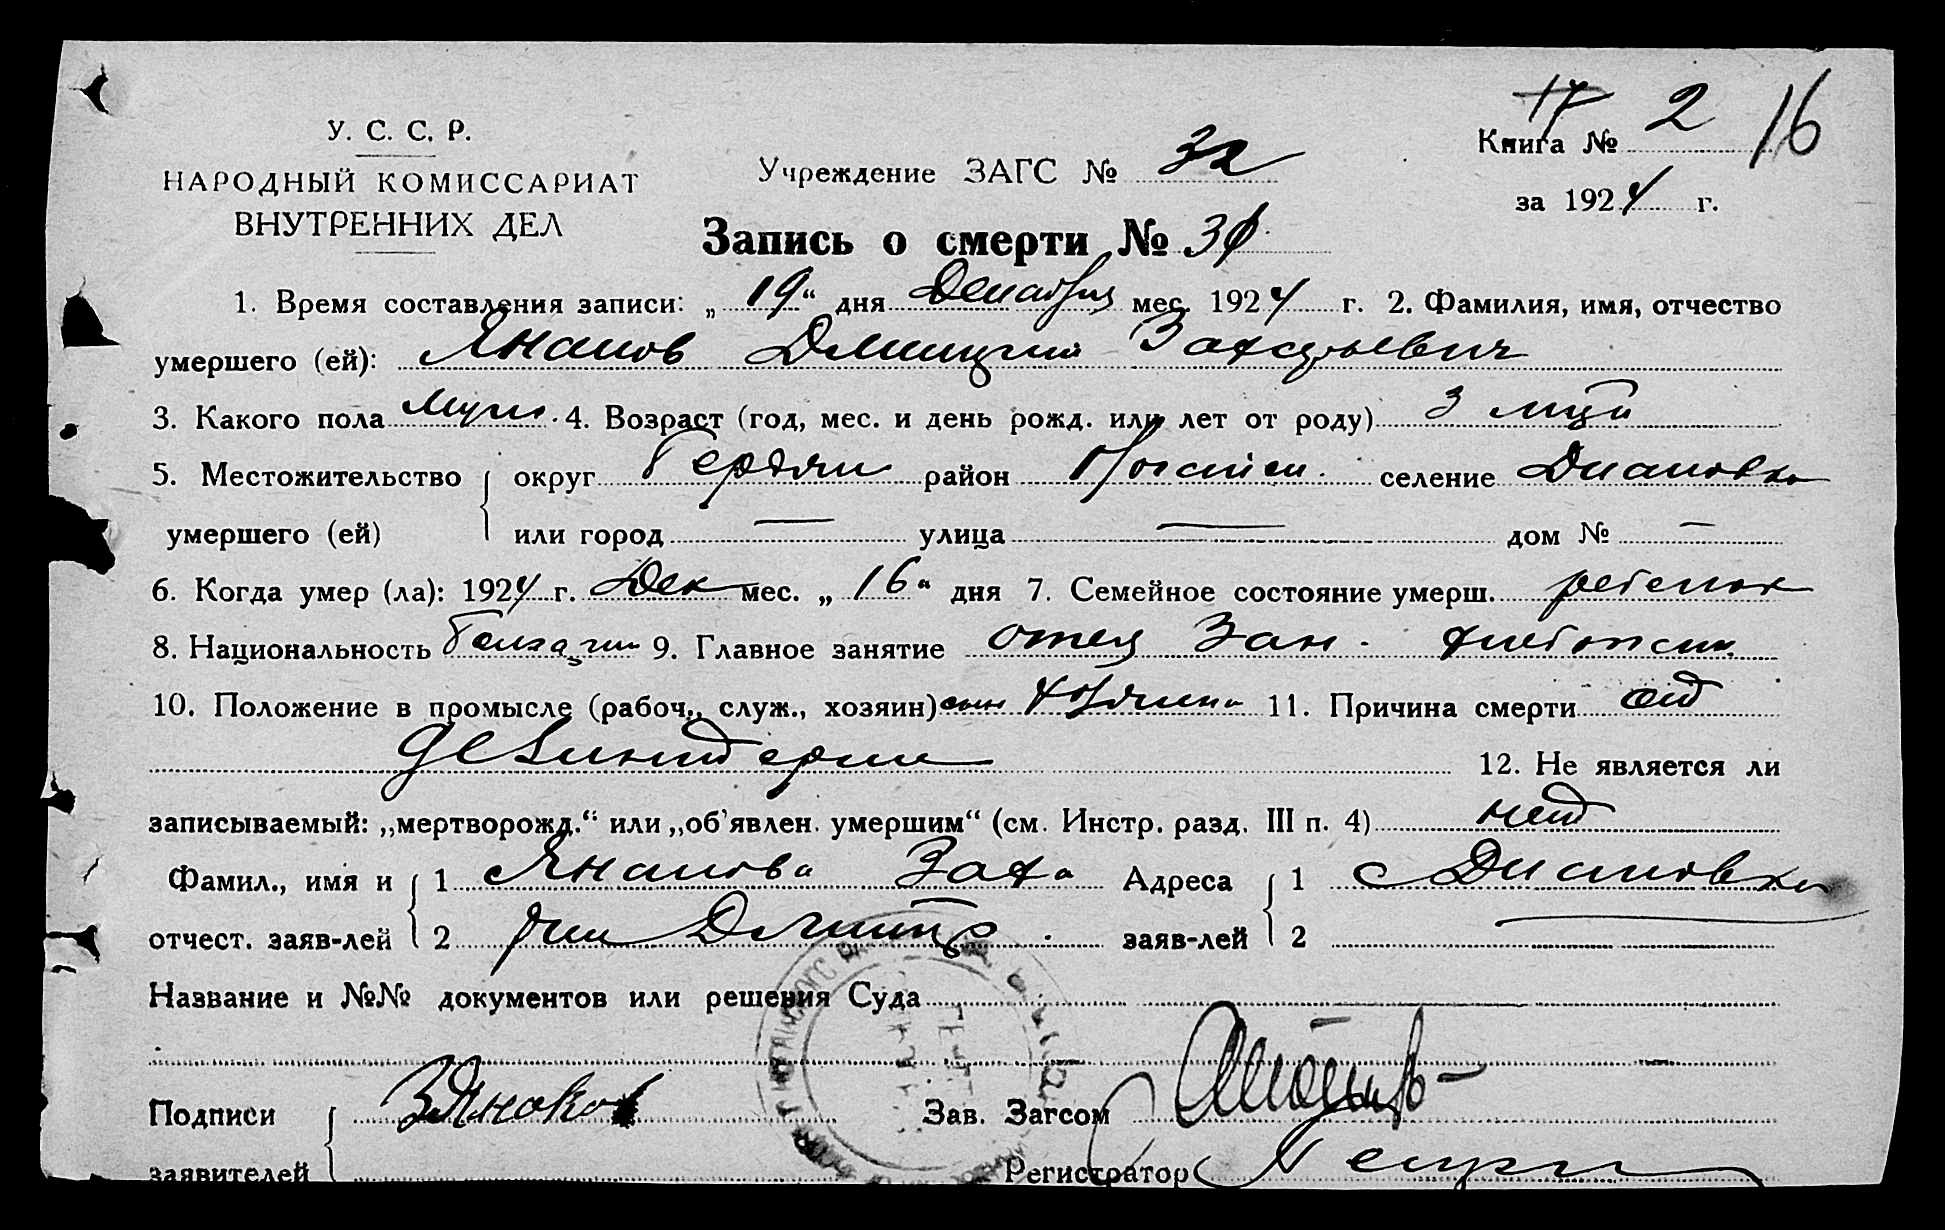 У. С. С. Р.
НАРОДНЫЙ КОМИССАРИАТ
ВНУТРЕННИХ ДЕЛ
Учреждение ЗАГС № 32
17
Книга № 2 16
за 1924 г.
Запись о смерти № 31
1. Время составления записи: „19“ дня Декабря мес. 1924 г. 2. Фамилия, имя, отчество
умершего (ей): Янаков Дмитрий Захарьевич
3. Какого пола Муж. 4. Возраст (год, мес. и день рожд. или лет от роду) 3
5. Местожительство округ район селение Диановка
умершего (ей) или город — улица — дом № —
6. Когда умер (ла): 1924 г. Дек мес. „16“ дня 7. Семейное состояние умерш. ребенок
8. Национальность Болгарин 9. Главное занятие отец Зан. хлебопаш.
10. Положение в промысле (рабоч., служ., хозяин) сын хозяина 11. Причина смерти от
дезинтерии 12. Не является ли
записываемый: „мертворожд.“ или „об'явлен. умершим“ (см. Инстр. разд. III п. 4) нет
Фамил., имя и 1 Янакова Заха Адреса 1 с Диановка
отчест. заяв-лей 2 рии Дмитр. заяв-лей 2
Название и №№ документов или решения Суда
Подписи ЗЯнаков Зав. Загсом
заявителей Регистратор